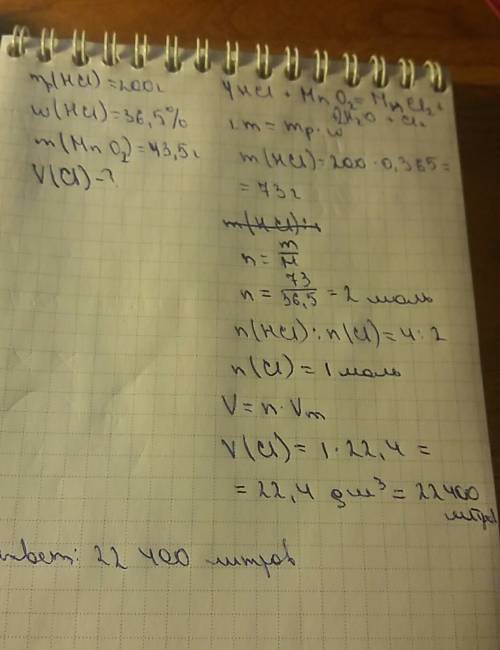 mр(HCl) = 200г
w(HCl) = 36,5%
m(MnO₂) = 43,5г
V(Cl) - ?
4HCl + MnO₂ = MnCl₂ +
2H₂O + Cl₂
1. m = mр · w
m(HCl) = 200 · 0,365 =
= 73г
m(HCl):
n = m/M
n = 73/36,5 = 2 моль
n(HCl) : n(Cl) = 4 : 2
n(Cl) = 1 моль
V = n · Vm
V(Cl) = 1 · 22,4 =
= 22,4 дм³ = 22400
литров
ответ: 22 400 литров